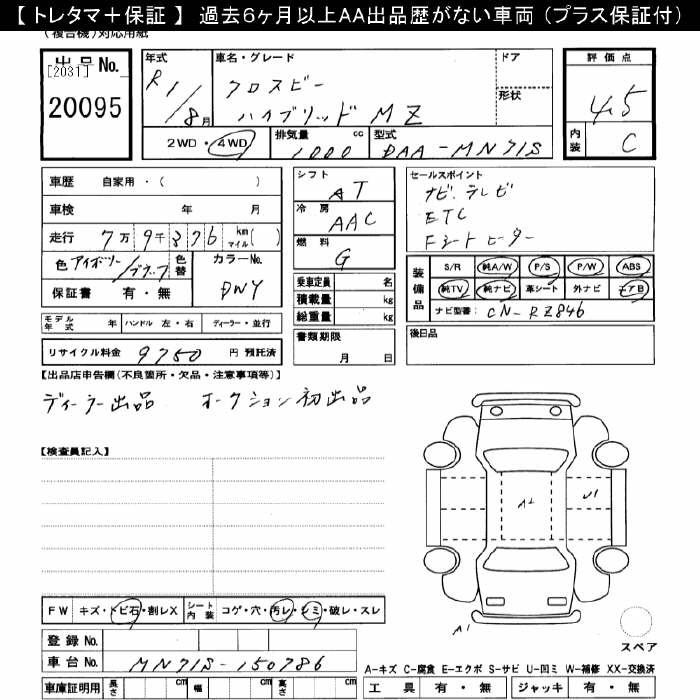 【 トレタマ＋保証 】 過去６ヶ月以上AA出品歴がない車両（プラス保証付）
(複合機)対応用紙
出品No.
[2031]
20095
年式
R1/8月
車名・グレード
クロスビー
ハイブリッド MZ
ドア
形状
2WD・4WD
排気量
1000 cc
型式
DAA-MN71S
評価点
4.5
内装
C
車歴 自家用・( )
車検 年 月
走行 7万9千376 km マイル( )
色 アイボリー/ブラック
色替
カラーNo.
DWY
保証書 有・無
シフト
AT
冷房
AAC
燃料
G
乗車定員 名
積載量 kg
総重量 kg
セールスポイント
ナビ.テレビ
ETC
Fシートヒーター
装備品
S/R 純A/W P/S P/W ABS
純TV 純ナビ 革シート 外ナビ エアB
ナビ型番: CN-RZ846
モデル年式 年 ハンドル 左・右 ディーラー・並行
リサイクル料金 9750 円 預託済
書類期限
月 日
後日品
【出品店申告欄(不良箇所・欠品・注意事項等)】
ディーラー出品 オークション初出品
【検査員記入】
A1
U1
A1
スペア
FW キズ・トビ石・割レX シート内装 コゲ・穴・汚レ・シミ・破レ・スレ
登録No.
車台No. MN71S-150786
車庫証明用 長さ cm 幅 cm 高さ cm
A-キズ C-腐食 E-エクボ S-サビ U-凹ミ W-補修 XX-交換済
工具 有・無 ジャッキ 有・無